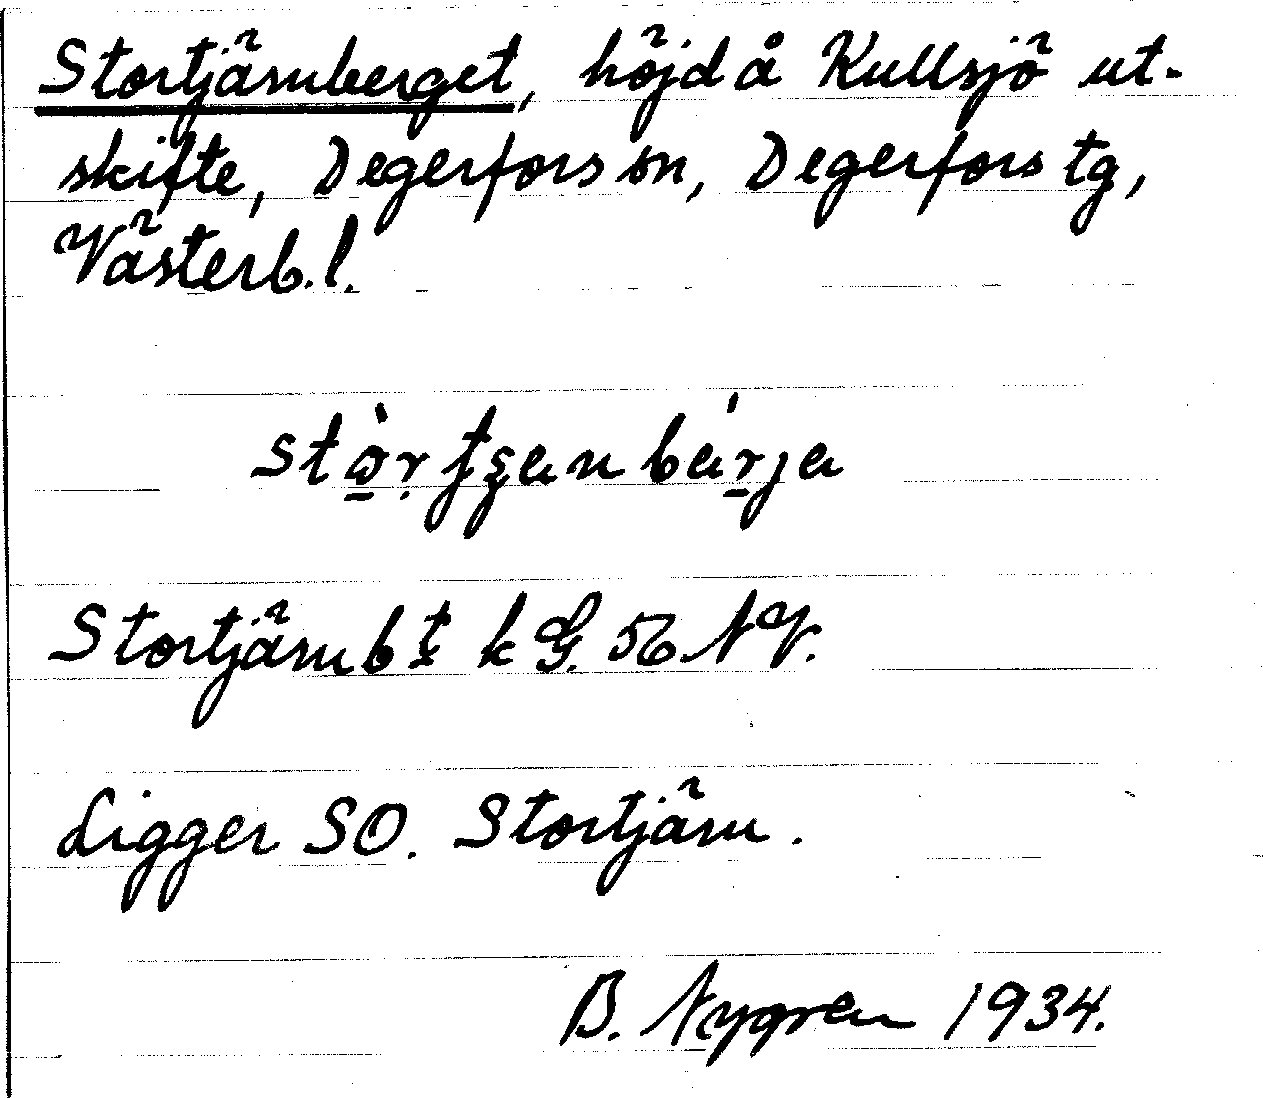 Stortjärnberget, höjd å Kullsjö ut-
skifte, Degerfors sn, Degerfors tg,
Västerb. l.
Stortjärnbt kG. 56 NV.
Ligger SO. Stortjärn.
B. Nygren 1934.